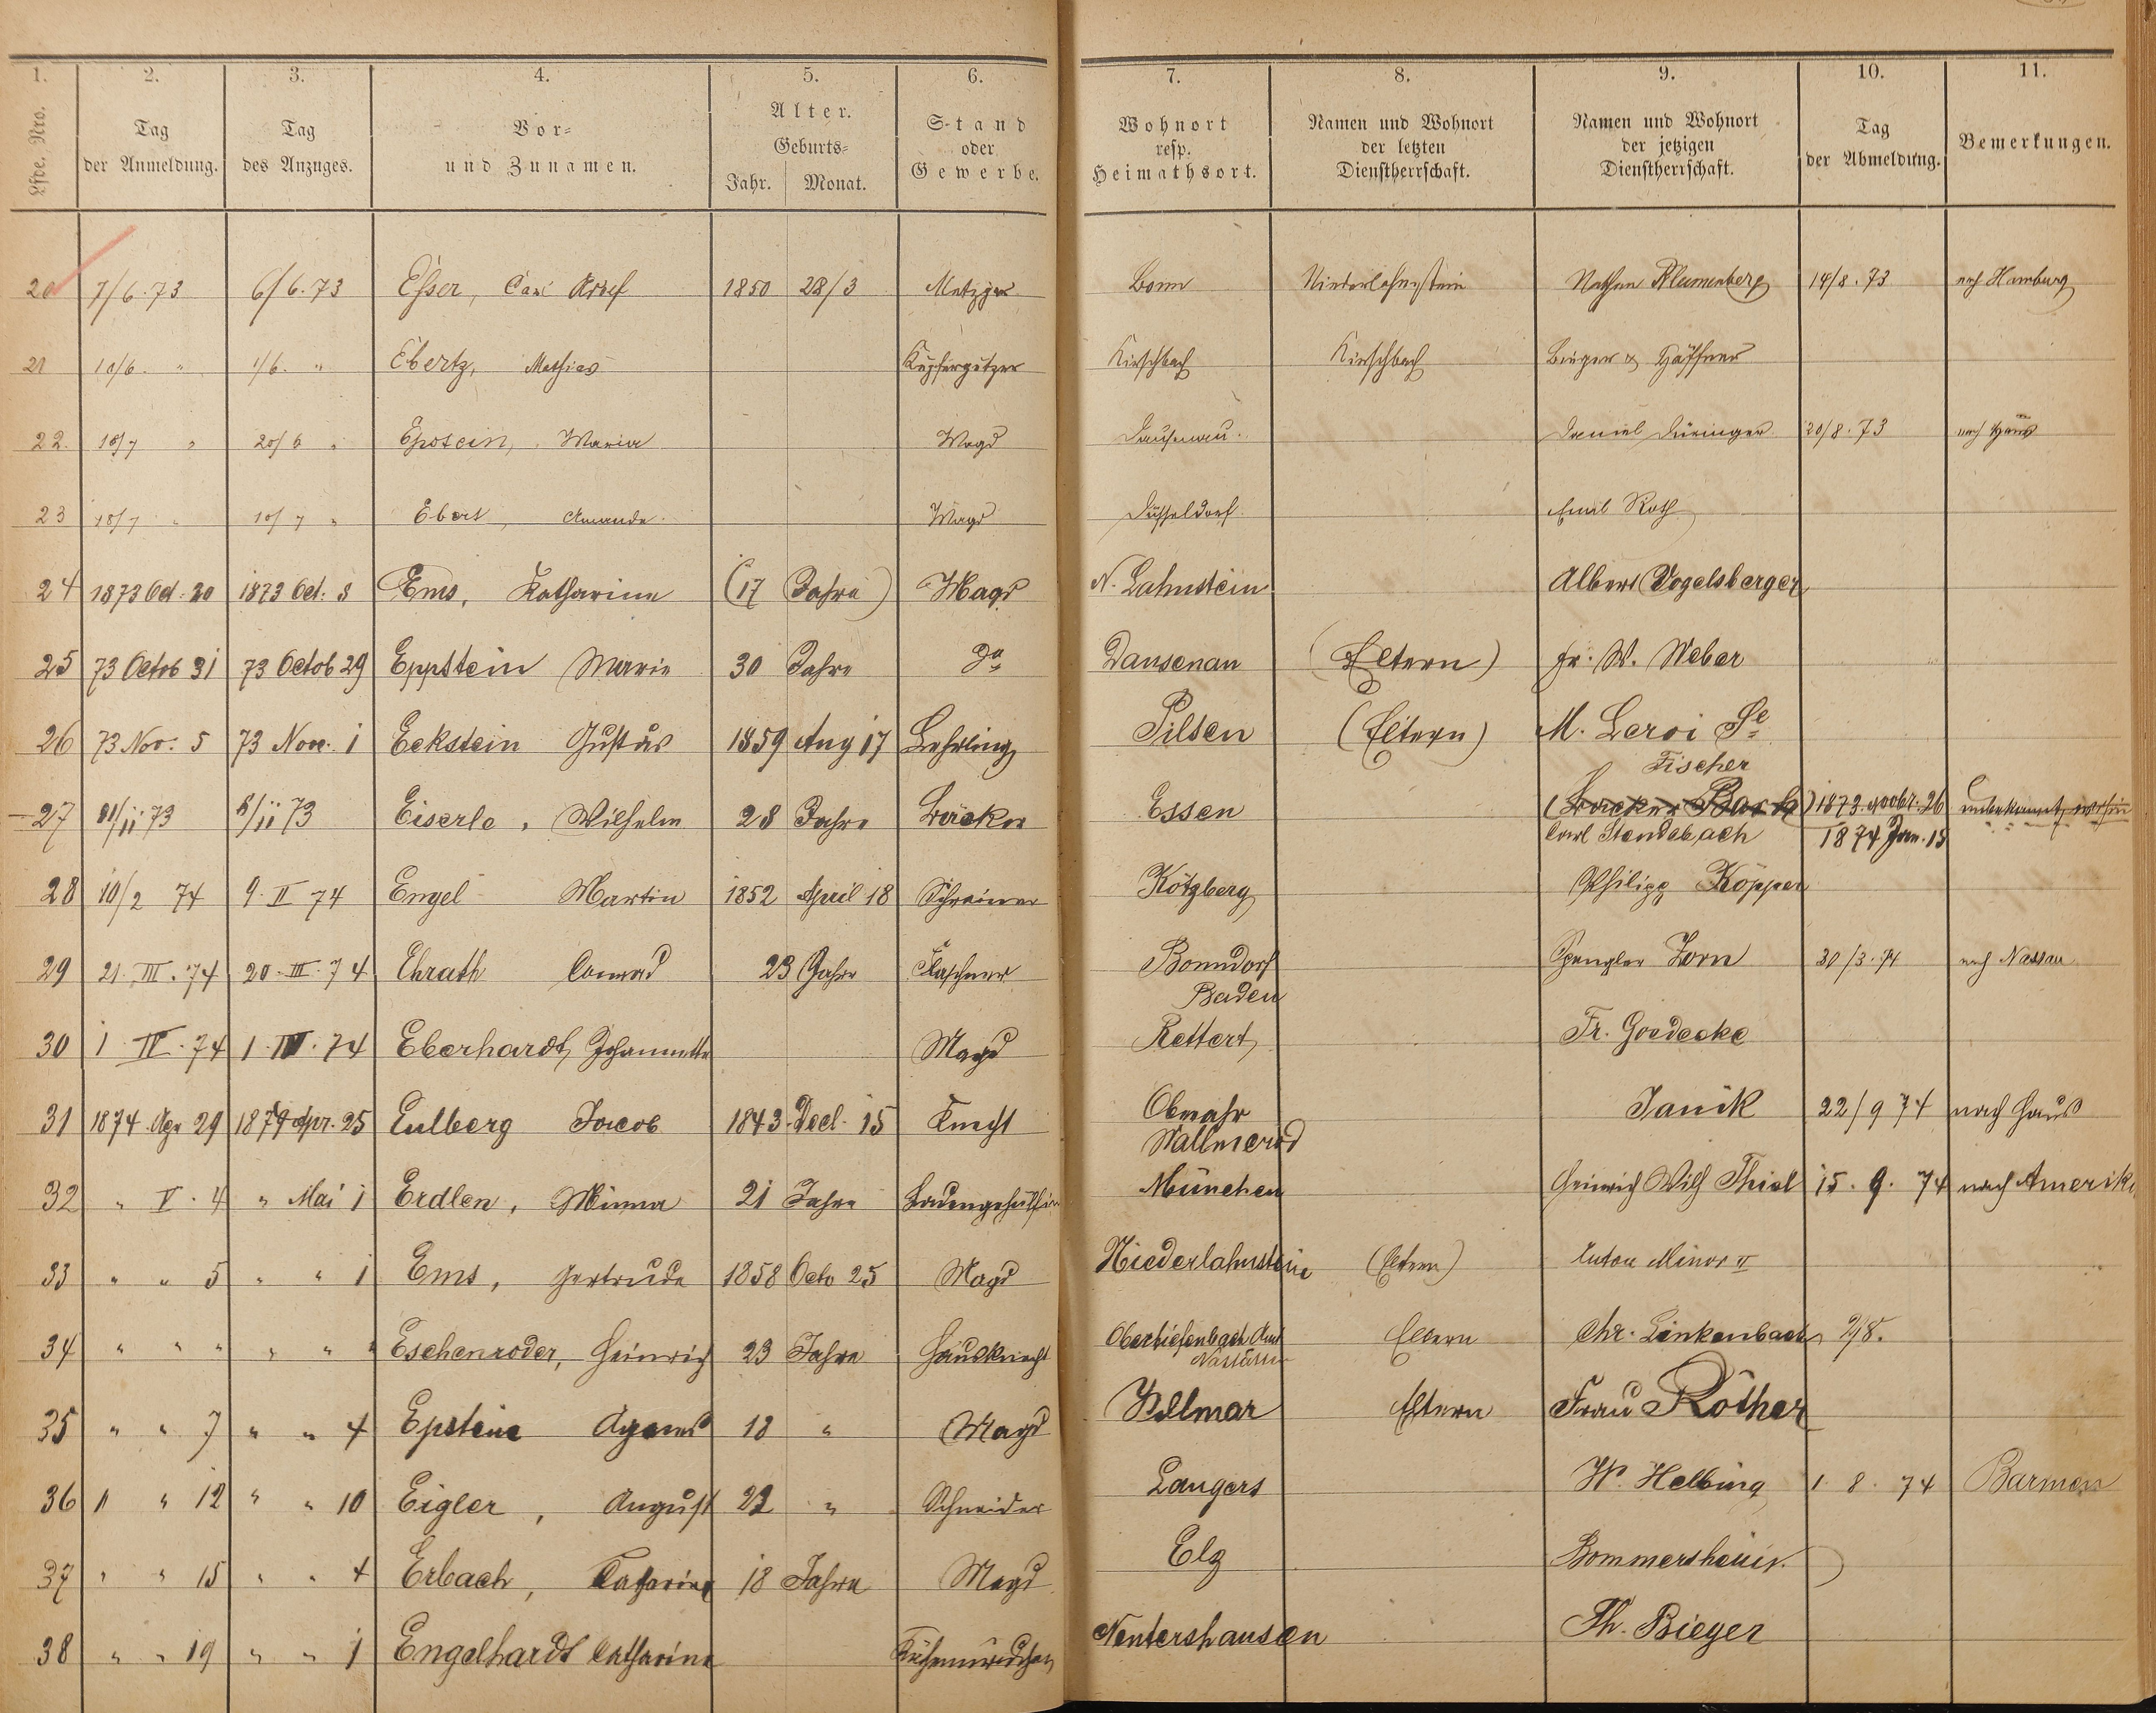 1. 2. 3. 4. 5. 6. 7. 8. 9. 10. 11.
Lfde. Nro. Tag der Anmeldung. Tag des Anzuges. Vor- und Zunamen. Alter. Geburts- Jahr. Monat. Stand oder Gewerbe. Wohnort resp. Heimathsort. Namen und Wohnort der letzten Dienstherrschaft. Namen und Wohnort der jetzigen Dienstherrschaft. Tag der Abmeldung. Bemerkungen.
20 7/6.73 6/6.73 Esser, Carl 1850 28/3 Metzger Bonn Niederlahnstein Nathan Blumenberg 14/8.73 nach Hamburg
21 10/6 " 1/6. " Ebertz, Mathias Kirschbach Kirschbach
22. 10/7 " 20/6 " Epstein, Maria Magd Dausenau. Daniel Düringer 20/8.73 nach Haus
23 10/7 " 10/7 " Ebert, Amanda Magd Düsseldorf Emil Roth
24 1873 Oct. 20 1873 Oct. 8 Ems, Katharina (17 Jahre) Magd N. Lahnstein Albert Vogelsberger
25 73 Octob 31 73 Octob 29 Eppstein Marie 30 Jahre do Dausenau (Eltern) Fr. W. Weber
26 73 Nov. 5 73 Nov. 1 Eckstein Gustav 1859 Aug 17 Lehrling Pilsen (Eltern) M. Leroi Se
27 /11 73 8/11 73 Eiserle, Wilhelm 28 Jahre Bäcker Essen Fischer
(Bäcker ) 1873 Novbr. 26 unbekannt, wohin
Carl Stendebach 1874 Jan. 15
28 10/2 74 9. II 74 Engel Martin 1852 April 18 Schreiner Kötzberg Philipp Köppen
29 21. III. 74 20. III. 74 Ehrath Conrad 23 Jahre Flaschner Bonndorf Spengler Zorn 30/3.74 nach Nassau
Baden
30 1. IV. 74 1. IV. 74 Eberhardt, Johannette Magd Rettert Fr. Goedecke
31 1874 Apr 29 1874 Apr. 25 Eulberg Jacob 1843 Decl. 15 Knecht Obnahr Janik 22/9 74 nach Haus
Wallmerod
32 " V. 4 " Mai 1 Erdlen, Minna 21 Jahre Ladengehülfin München Heinrich Wilh Thiel 15. 9. 74 nach Amerika
33 " " 5 " " 1 Ems, Gertruda 1858 Octo 25 Magd Niederlahnstein (Eltern) Anton Minor II
34 " " " " " " Eschenroder, Heinrich 23 Jahre Hausknecht Obertiefenbach Amt Eltern Chr. Linkenbach
Nassau
35 " " 7 " " 4 Epstein Agnes 18 " Magd Villmar Eltern Frau Röther
36 " " 12 " " 10 Eigler, August 22 " Schneider Langers W. Helbing 1. 8. 74 Barmen
37 " " 15 " " 4 Erbach, Catharina 18 Jahre Magd Elz Bommersheim
38 " " 19 " " 1 Engelhardt Catharina Küchenmädchen Nentershausen Th. Bieger